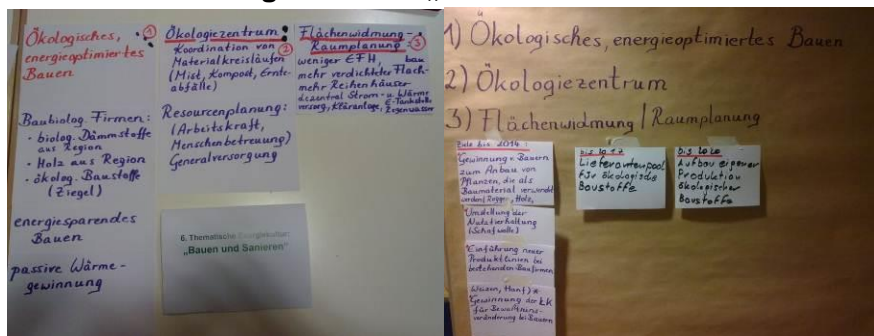 Ökologisches,
energieoptimiertes
Bauen
Baubiolog. Firmen:
• biolog. Dämmstoffe
aus Region
• Holz aus Region
• ökolog. Baustoffe
(Ziegel)
energiesparendes
Bauen
passive Wärme-
gewinnung
Ökologiezentrum
Koordination von
Materialkreisläufen
(Mist, Kompost, Ernte-
abfälle)
Resourcenplanung:
(Arbeitskraft,
Menschenbetreuung)
Generalversorgung
Flächenwidmung -
Raumplanung
weniger EFH,
mehr verdichteter Flach-
bau
mehr Reihenhäuser
dezentral Strom- u. Wärme
versorg, Kläranlage, E-Tankstelle
Regenwasser
6. Thematische Energiekultur:
„Bauen und Sanieren"
1) Ökologisches, energieoptimiertes Bauen
2) Ökologiezentrum
3) Flächenwidmung / Raumplanung
Ziele bis 2014:
Gewinnung v. Bauern
zum Anbau von
Pflanzen, die als
Baumaterial verwendet
werden (Roggen, Holz,
Umstellung der
Nutztierhaltung
(Schafwolle)
Einführung neuer
Produktlinien bei
bestehenden Baufirmen
Weizen, Hanf) *
Gewinnung der LK
für Bewußtseins-
veränderung bei Bauern
bis 2017
Lieferantenpool
für ökologische
Baustoffe
bis 2020
Aufbau eigener
Produktion
ökologischer
Baustoffe